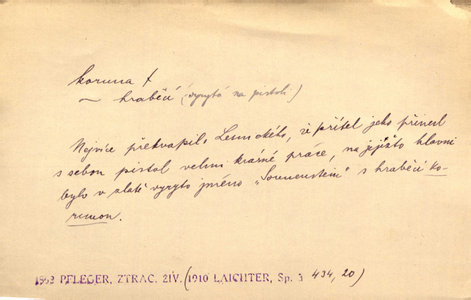 koruna f
~ hraběcí (vyrytá na pistoli)
Nejvíce překvapilo Lesnického, že přítel jeho přinesl
s sebou pistol velmi krásné práce, na jejížto hlavni
bylo v zlatě vyryto jméno „Sonnenstein" s hraběcí ko-
runou.
1862 PFLEGER, ZTRAC. ŽIV. (1910 LAICHTER, Sp. 3 434, 20)